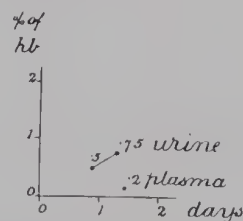 % of
hb
2
1
.5 .75 urine
.2 plasma
0
0 1 2
days